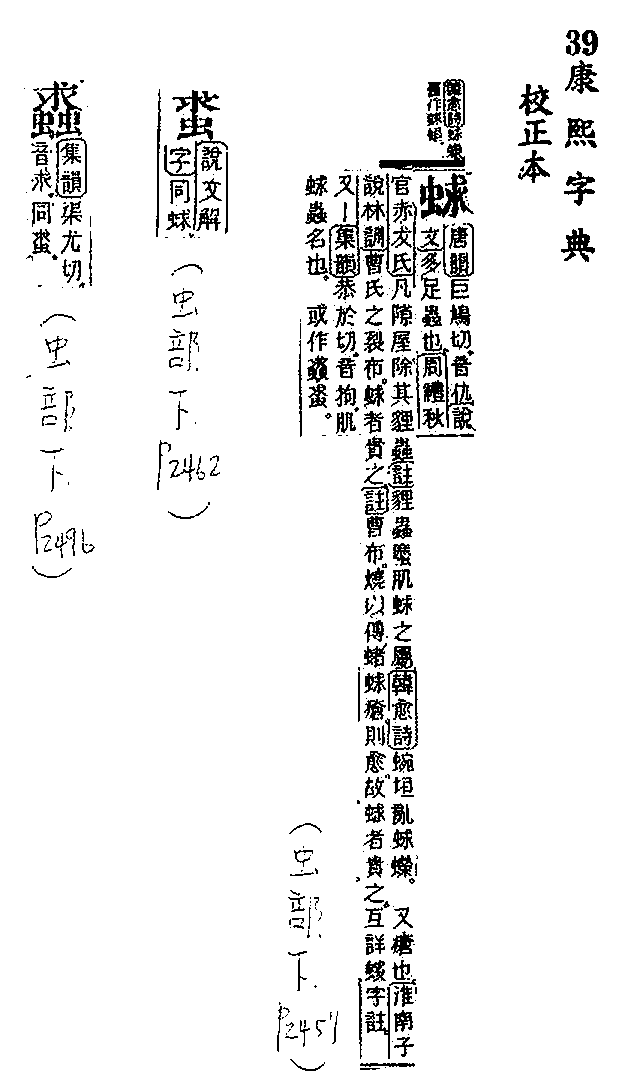 39康熙字典
校正本
蛷 唐韻巨鳩切音仇說
文多足蟲也周禮秋
官赤犮氏凡隙屋除其貍蟲註貍蟲肌蛷之屬韓愈詩蜿垣亂蛷。又瘡也淮南子
說林訓曹氏之裂布蛷者貴之註曹布燒以傅蛷瘡則愈故蛷者貴之互詳螋字註
又｜集韻恭於切音拘肌
蛷蟲名也。或作
(虫部下 P2457)
說文解
字同蛷
(虫部下 P2462)
集韻渠尤切
音求同
(虫部下 P2496)